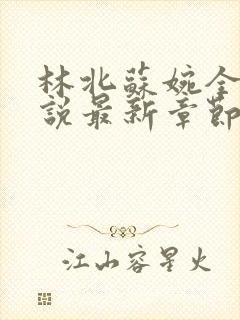 林北蘇婉全
說最新章節
江山容星火